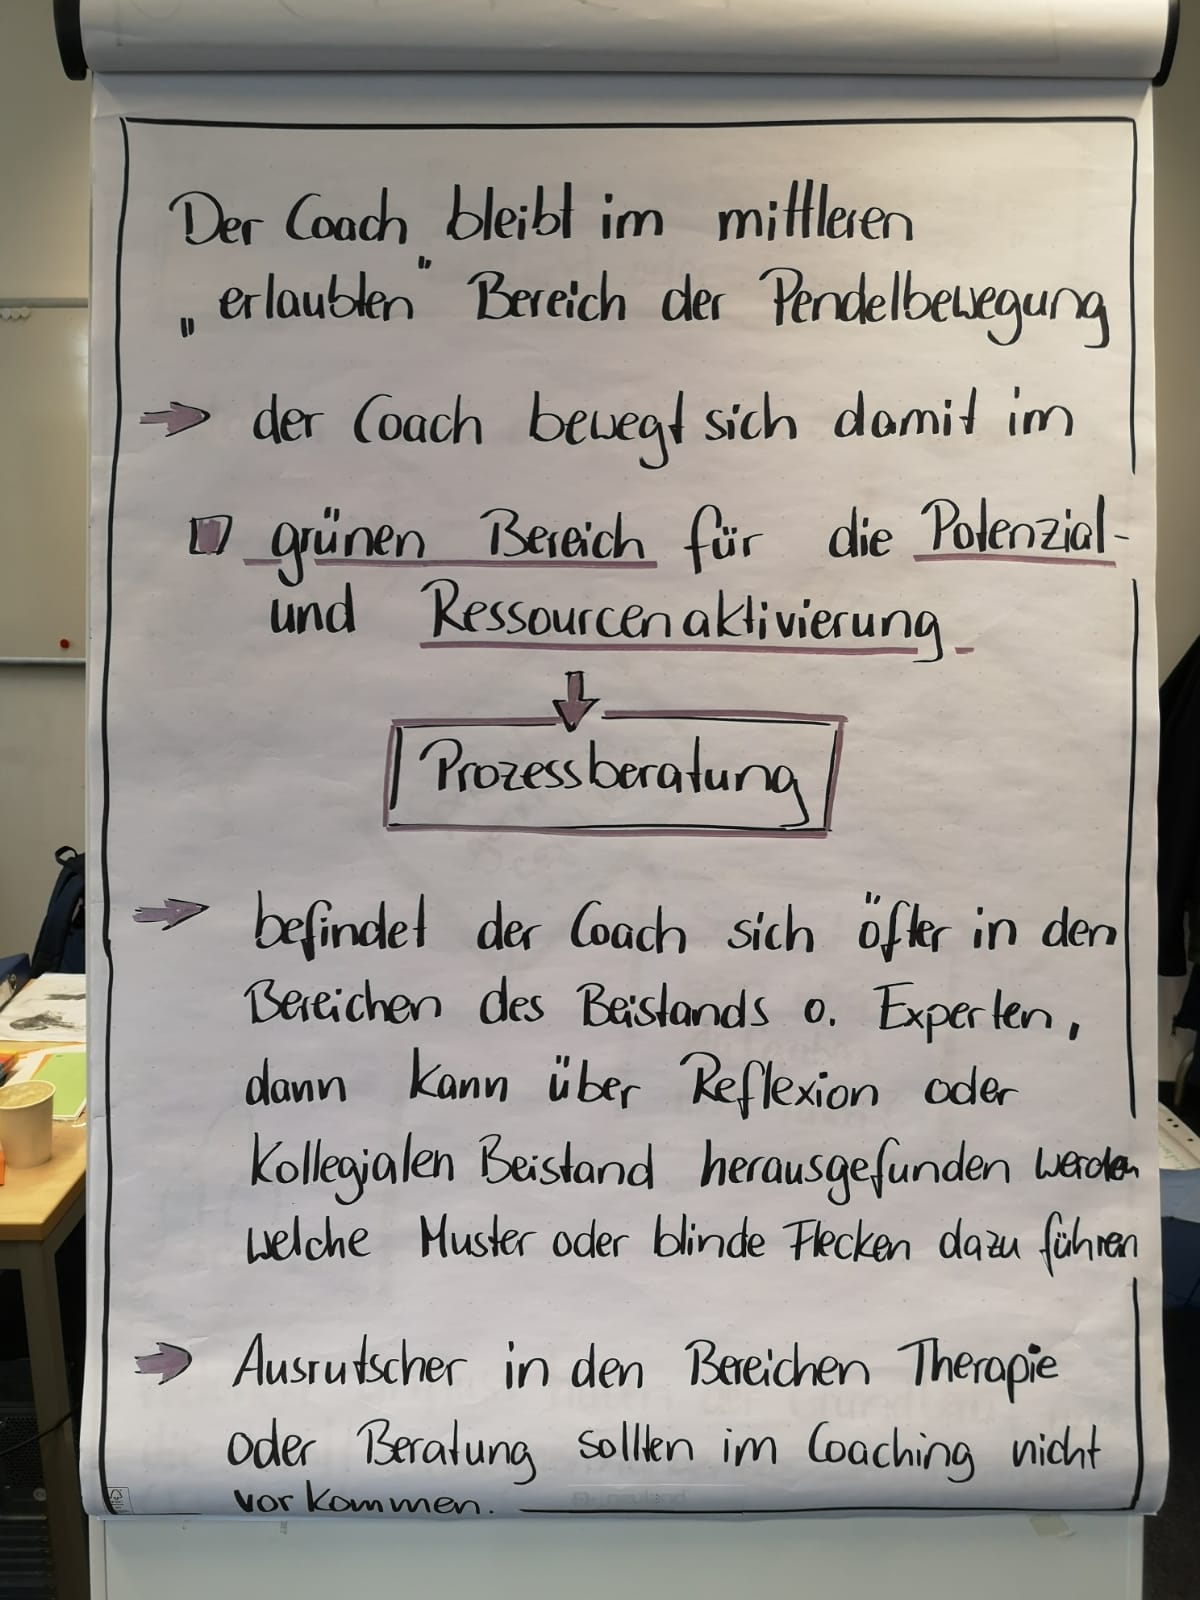 Der Coach bleibt im mittleren
„erlaubten" Bereich der Pendelbewegung
der Coach bewegt sich damit im
grünen Bereich für die Potenzial-
und Ressourcenaktivierung.
Prozessberatung
befindet der Coach sich öfter in den
Bereichen des Beistands o. Experten,
dann kann über Reflexion oder
Kollegialen Beistand herausgefunden werden
welche Muster oder blinde Flecken dazu führen
Ausrutscher in den Bereichen Therapie
oder Beratung sollten im Coaching nicht
vorkommen.